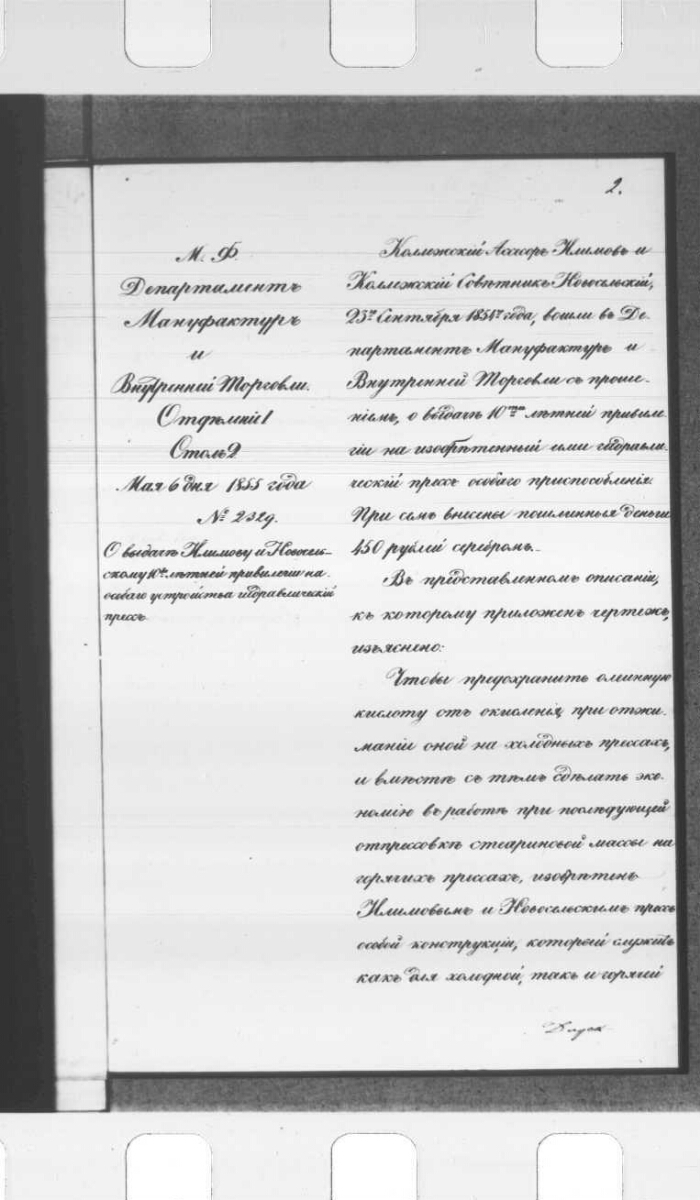 2.
М. Ф.
Департаментъ
Мануфактуръ
и
Внутренней Торговли.
Отдѣленіе 1
Столъ 2
Мая 6 дня 1855 года
№ 2329.
О выдачѣ Илимову и Новосель-
скому 10ти лѣтней привилегіи на
особаго устройства гидравлическій
прессъ
Коллежскій Ассесоръ Илимовъ и
Коллежскій Совѣтникъ Новосельскій,
23го Сентября 1854го года, вошли въ Де-
партаментъ Мануфактуръ и
Внутренней Торговли съ проше-
ніемъ, о выдачѣ 10ти лѣтней привиле-
гіи на изобрѣтенный ими гидравли-
ческій прессъ особаго приспособленія.
При семъ внесены пошлинныя деньги
450 рублей серебромъ.
Въ представленномъ описаніи,
къ которому приложенъ чертежъ,
изъяснено:
Чтобы предохранить олеинную
кислоту отъ окисленія, при отжи-
маніи оной на холодныхъ прессахъ,
и вмѣстѣ съ тѣмъ сдѣлать эко-
номію въ работѣ при послѣдующей
отпрессовкѣ стеариновой массы на
горячихъ прессахъ, изобрѣтенъ
Илимовымъ и Новосельскимъ прессъ
особой конструкціи, который служитъ
какъ для холодной, такъ и горячей